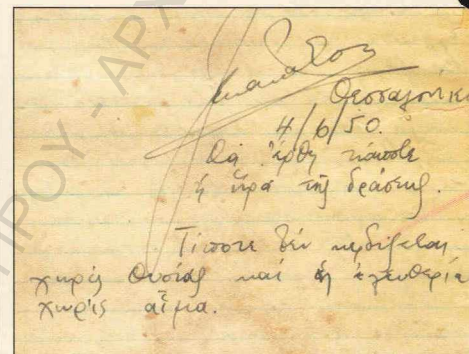 Θεσσαλονίκη
4/6/50.
Θά ἔρθη κάποτε
ἡ ὥρα τῆς δράσης.
Τίποτε δέν κερδίζεται
χωρίς θυσίας καί ἡ ἐλευθερία
χωρίς αἷμα.
ΠΡΟΥ - ΑΡΧ